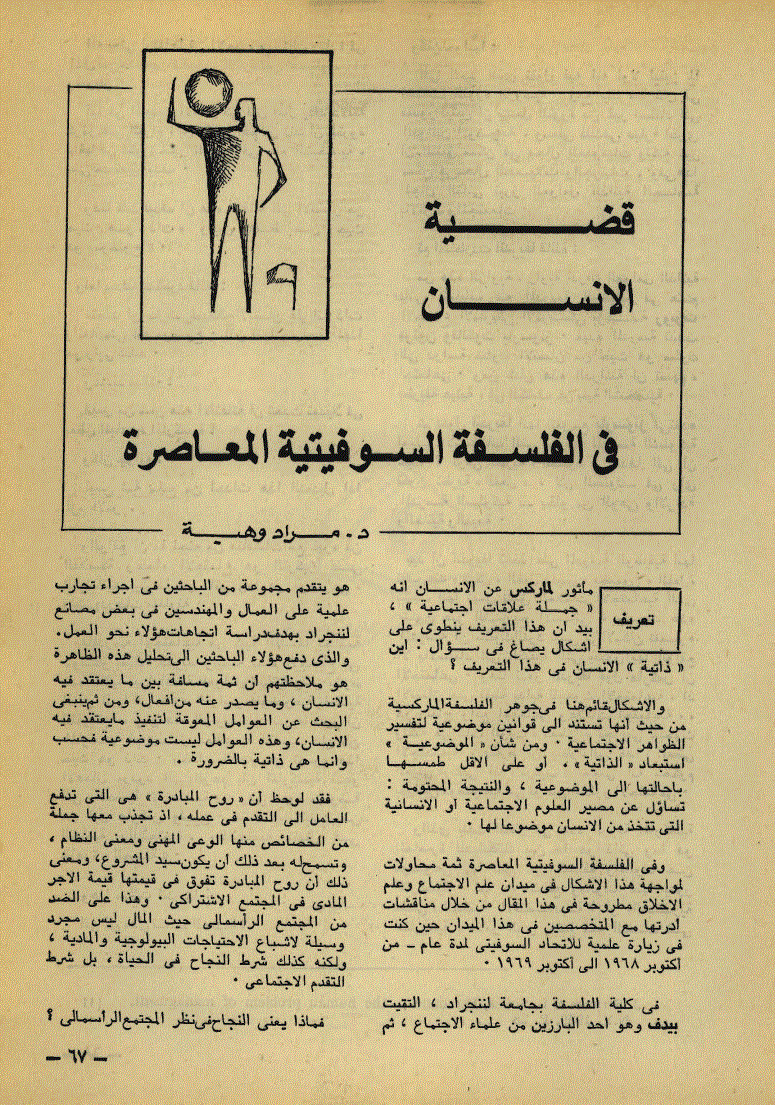 قضية
الانسان
فى الفلسفة السوفيتية المعاصرة
د. مراد وهبة
تعريف
مأثور لماركس عن الانسان انه
« جملة علاقات اجتماعية » ،
بيد ان هذا التعريف ينطوى على
اشكال يصاغ فى سؤال : اين
« ذاتية » الانسان فى هذا التعريف ؟
والاشكال قائم هنا فى جوهر الفلسفة الماركسية
من حيث انها تستند الى قوانين موضوعية لتفسير
الظواهر الاجتماعية . ومن شأن « الموضوعية »
استبعاد « الذاتية » . او على الاقل طمسها
باحالتها الى الموضوعية ، والنتيجة المحتومة :
تساؤل عن مصير العلوم الاجتماعية او الانسانية
التى تتخذ من الانسان موضوعا لها .
وفى الفلسفة السوفيتية المعاصرة ثمة محاولات
لمواجهة هذا الاشكال فى ميدان علم الاجتماع وعلم
الاخلاق مطروحة فى هذا المقال من خلال مناقشات
أدرتها مع المتخصصين فى هذا الميدان حين كنت
فى زيارة علمية للاتحاد السوفيتى لمدة عام ـ من
أكتوبر ١٩٦٨ الى أكتوبر ١٩٦٩ .
فى كلية الفلسفة بجامعة لننجراد ، التقيت
بيدف وهو احد البارزين من علماء الاجتماع ، ثم
هو يتقدم مجموعة من الباحثين فى اجراء تجارب
علمية على العمال والمهندسين فى بعض مصانع
لننجراد بهدف دراسة اتجاهات هؤلاء نحو العمل.
والذى دفع هؤلاء الباحثين الى تحليل هذه الظاهرة
هو ملاحظتهم ان ثمة مسافة بين ما يعتقد فيه
الانسان ، وما يصدر عنه من افعال، ومن ثم ينبغى
البحث عن العوامل المعوقة لتنفيذ مايعتقد فيه
الانسان، وهذه العوامل ليست موضوعية فحسب
وانما هى ذاتية بالضرورة .
فقد لوحظ أن « روح المبادرة » هى التى تدفع
العامل الى التقدم فى عمله ، اذ تجذب معها جملة
من الخصائص منها الوعى المهنى ومعنى النظام ،
وتسمح له بعد ذلك أن يكون سيد المشروع، ومعنى
ذلك أن روح المبادرة تفوق فى قيمتها قيمة الاجر
المادى فى المجتمع الاشتراكى . وهذا على الضد
من المجتمع الرأسمالى حيث المال ليس مجرد
وسيلة لاشباع الاحتياجات البيولوجية والمادية ،
ولكنه كذلك شرط النجاح فى الحياة ، بل شرط
التقدم الاجتماعى .
فماذا يعنى النجاح فى نظر المجتمع الرأسمالى ؟
ـ ٦٧ ـ